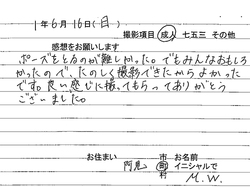 1年6月16日(日)
撮影項目 成人 七五三 その他
感想をお願いします
ポーズをとるのが難しかった。でもみんなおもしろ
かったので、たのしく撮影できたからよかった
です。良い感じに撮ってもらってありがとう
ございました。
お住まい 阿見 市町村 お名前 イニシャルで M.W.